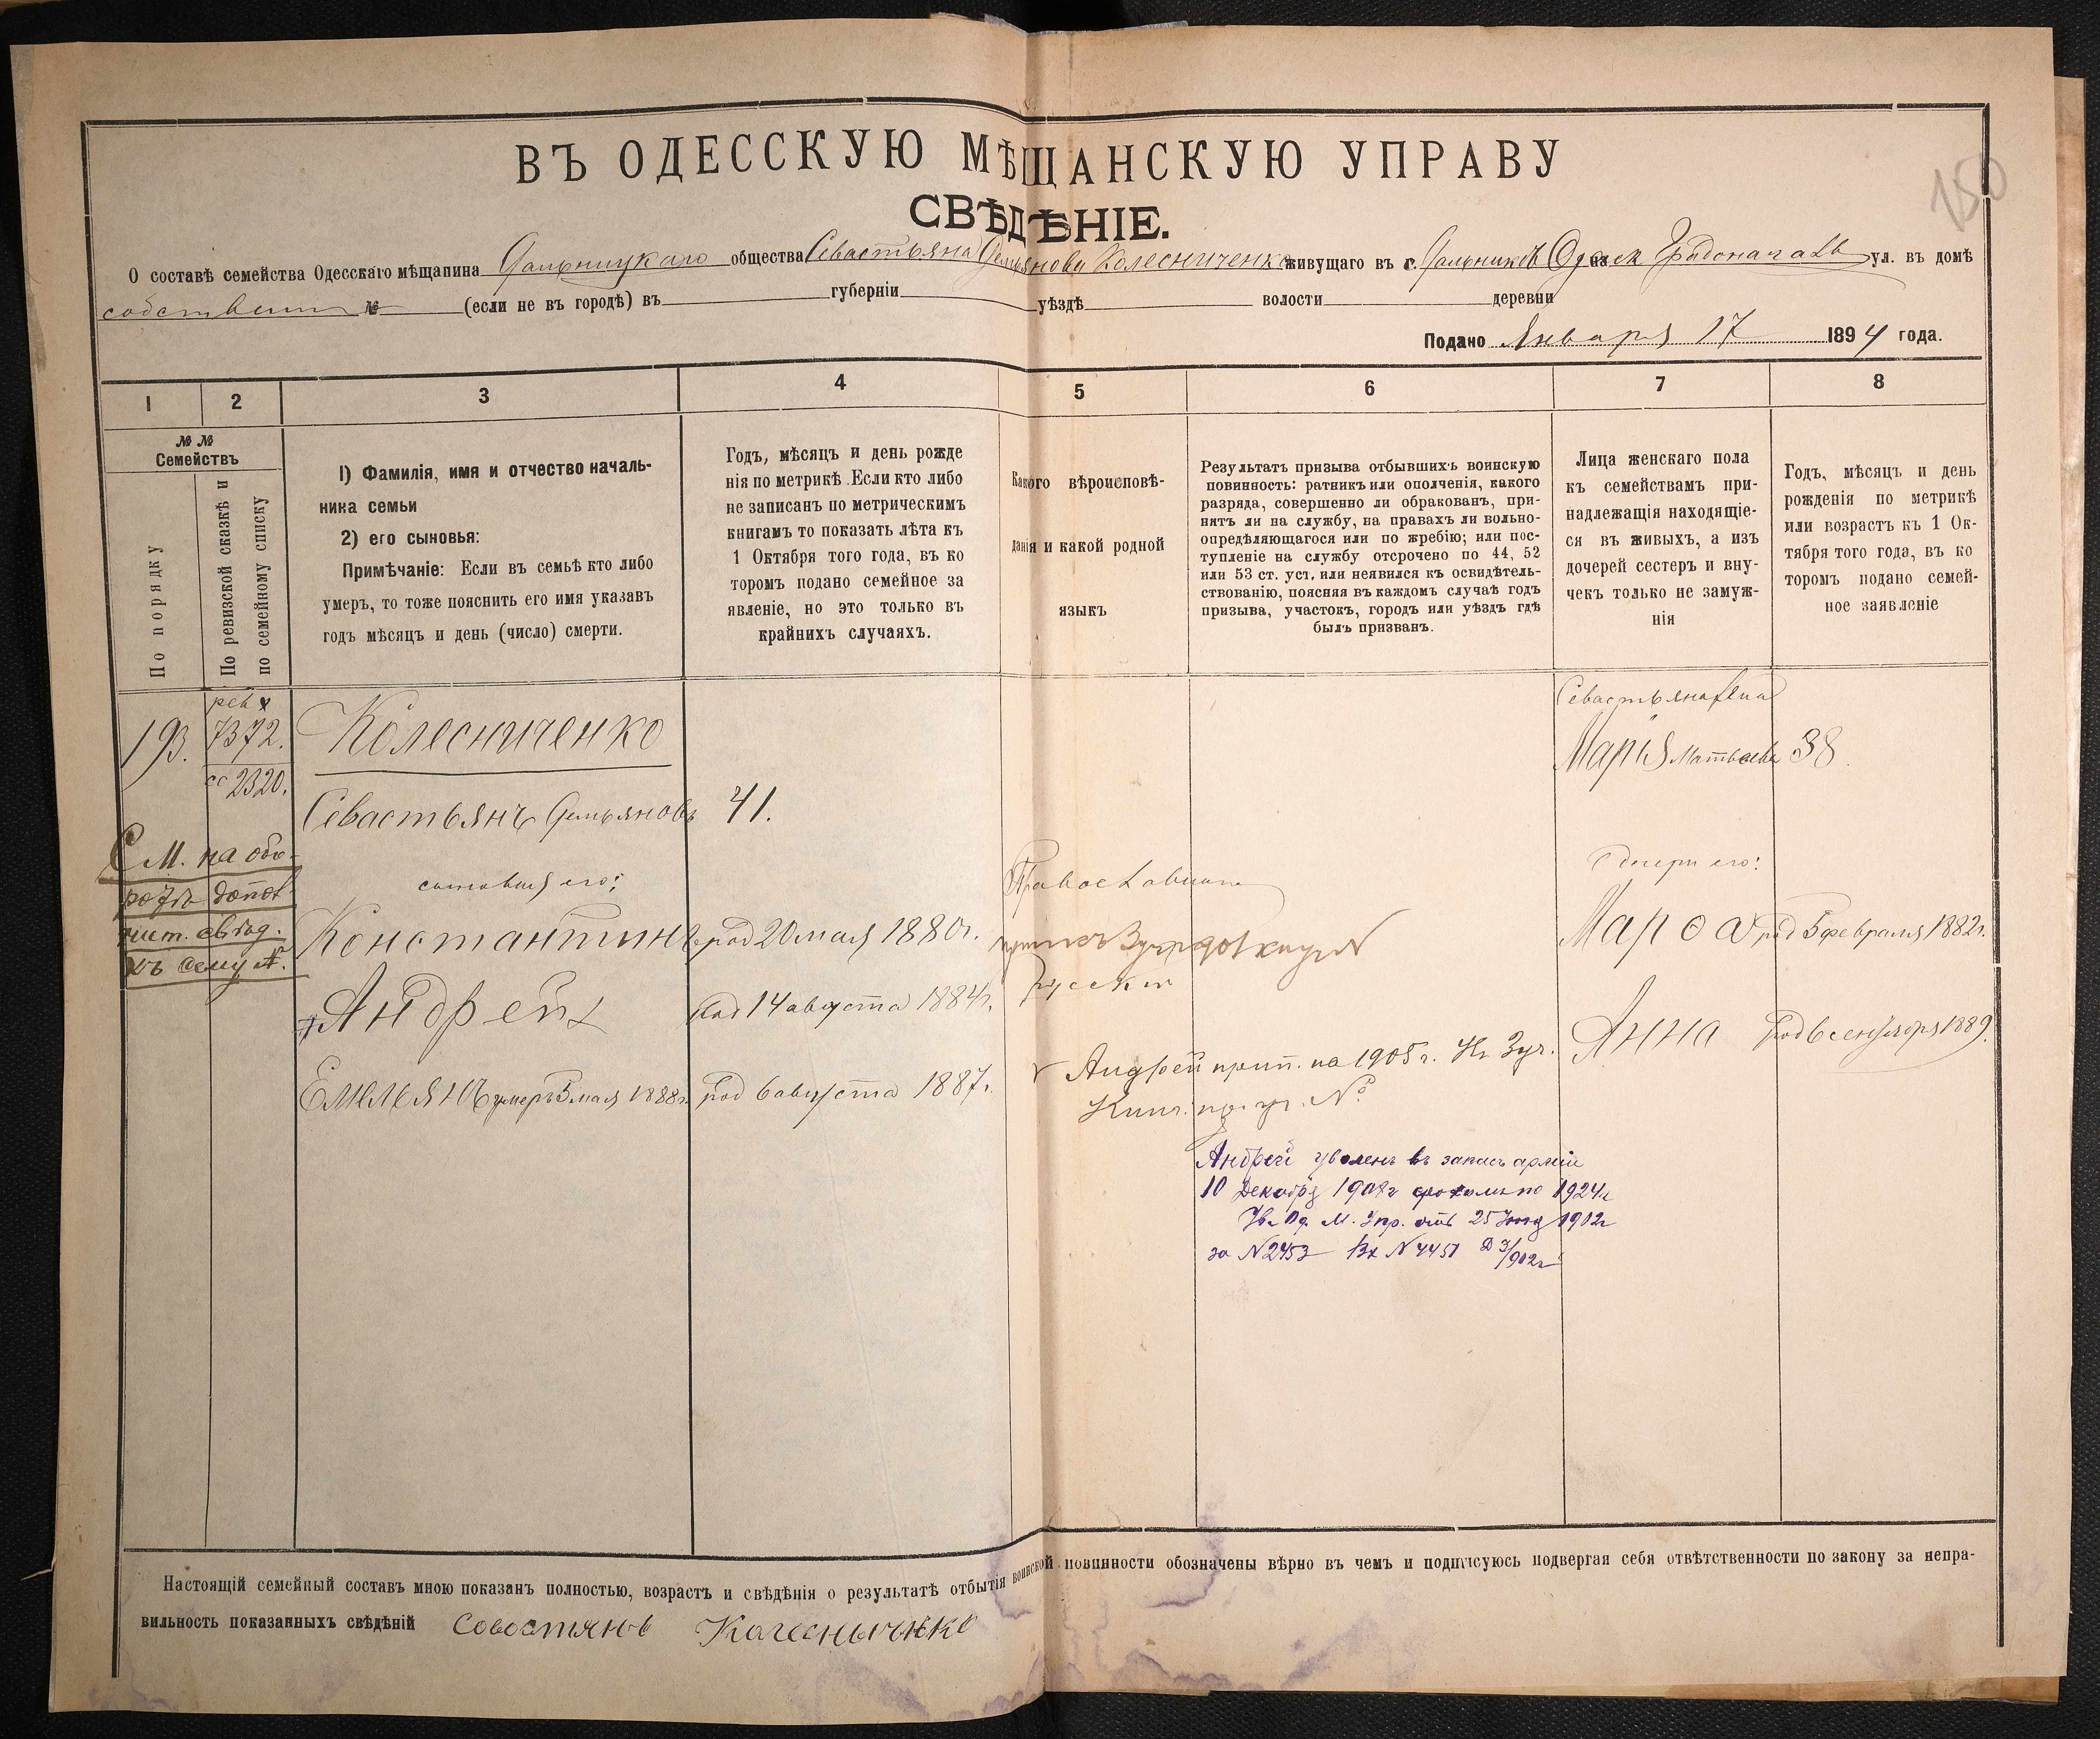 150
ВЪ ОДЕССКУЮ МѢЩАНСКУЮ УПРАВУ
СВѢДѢНІЕ.
О составѣ семейства Одесскаго мѣщанина Дальницкаго общества Севастьяна Демьянова Колесниченко живущаго въ с. Дальникъ Одесск Градоначаль ул. въ домѣ
собствен № (если не въ городѣ) въ губерніи уѣздѣ волости деревни
Подано Января 17 1894 года.
1 2 3 4 5 6 7 8
№ №
Семействъ
По порядку
По ревизской сказкѣ и
по семейному списку
1) Фамилія, имя и отчество началь-
ника семьи
2) его сыновья:
Примѣчаніе: Если въ семьѣ кто либо
умеръ, то тоже пояснить его имя указавъ
годъ мѣсяцъ и день (число) смерти.
Годъ, мѣсяцъ и день рожде
нія по метрикѣ. Если кто либо
не записанъ по метрическимъ
книгамъ то показать лѣта къ
1 Октября того года, въ ко
торомъ подано семейное за
явленіе, но это только въ
крайнихъ случаяхъ.
Какого вѣроисповѣ-
данія и какой родной
языкъ
Результатъ призыва отбывшихъ воинскую
повинность: ратникъ или ополченія, какого
разряда, совершенно ли обракованъ, при-
нятъ ли на службу, на правахъ ли вольно-
опредѣляющагося или по жребію; или пос-
тупленіе на службу отсрочено по 44, 52
или 53 ст. уст. или неявился къ освидѣтель-
ствованію, поясняя въ каждомъ случаѣ годъ
призыва, участокъ, городъ или уѣздъ гдѣ
былъ призванъ.
Лица женскаго пола
къ семействамъ при-
надлежащія находящіе-
ся въ живыхъ, а изъ
дочерей сестеръ и вну-
чекъ только не замуж-
нія
Годъ, мѣсяцъ и день
рожденія по метрикѣ
или возрастъ къ 1 Ок-
тября того года, въ ко
торомъ подано семей-
ное заявленіе
193.
рев
7372.
сс 2320.
Колесниченко
Севастьяна жена
Марія Матвеева 38
Севастьянъ Демьяновъ 41.
См. на обо-
ротѣ
къ сему №.
сыновья его:
Православнаго
дочери его:
Константинъ род 20 мая 1880 г.
Марѳа род 5 февраля 1882 г.
Русскій
Андрей род 14 августа 1884 г.
Анна род 6 сентября 1889.
Емельянъ умеръ 3 мая 1888 г. род 6 августа 1887 г.
Андрей прип. на 1905 г. Уч.
№
Андрей уволенъ въ запасъ арміи
10 Декабря 1907 г 1924 г
М. Упр. отъ 25 1902 г
за № 2453 Вх № 4451
Настоящій семейный составъ мною показанъ полностью, возрастъ и свѣдѣнія о результатѣ отбытія воинской повинности обозначены вѣрно въ чемъ и подписуюсь подвергая себя отвѣтственности по закону за непра-
вильность показанныхъ свѣдѣній Совостянъ Колесныченко